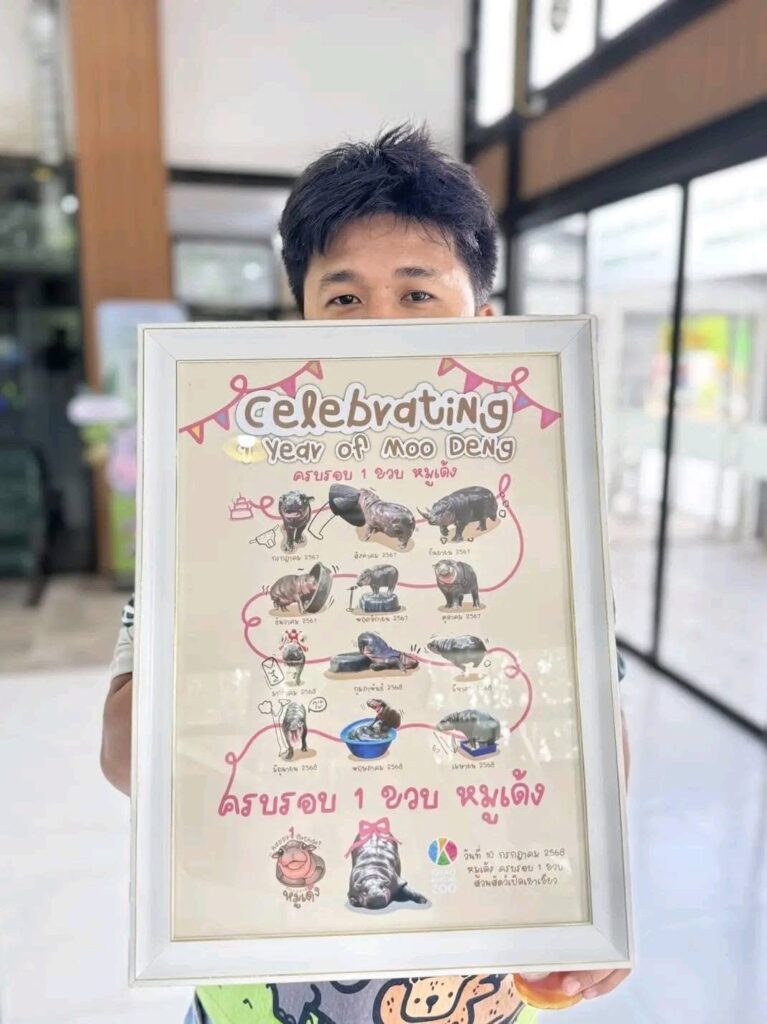 Celebrating
1 Year of Moo Deng
ครบรอบ 1 ขวบ หมูเด้ง
กรกฎาคม 2567
สิงหาคม 2567
กันยายน 2567
ธันวาคม 2567
พฤศจิกายน 2567
ตุลาคม 2567
มกราคม 2568
กุมภาพันธ์ 2568
มีนาคม 2568
มิถุนายน 2568
พฤษภาคม 2568
เมษายน 2568
ครบรอบ 1 ขวบ หมูเด้ง
1
Happy Birthday
หมูเด้ง
ZOO
วันที่ 10 กรกฎาคม 2568
หมูเด้ง ครบรอบ 1 ขวบ
สวนสัตว์เปิดเขาเขียว